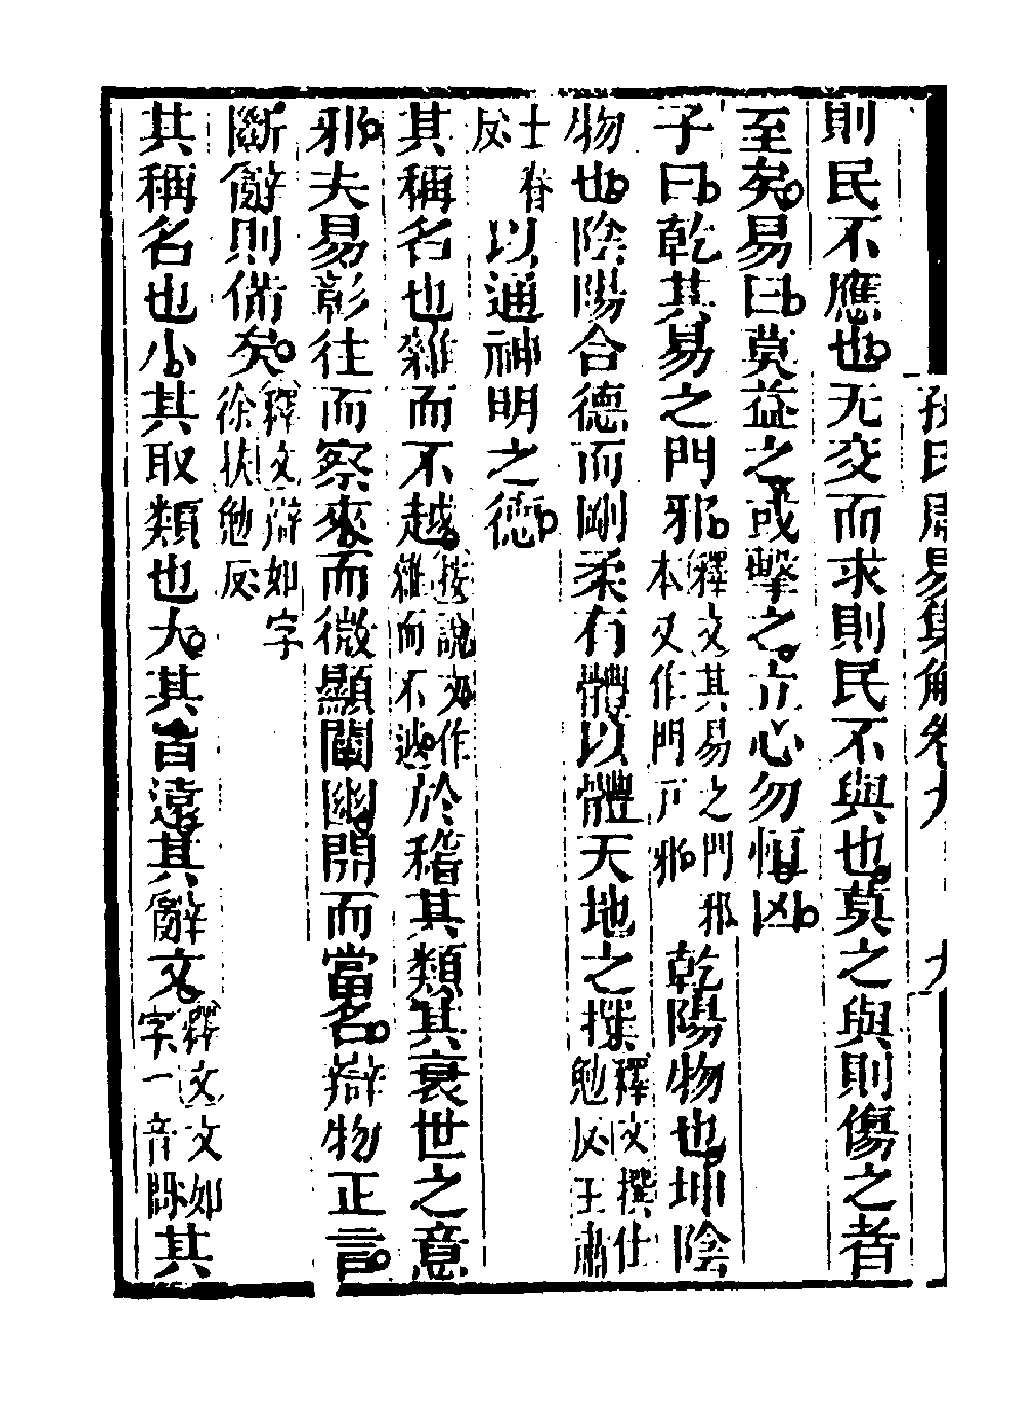 孫氏周易集解卷九　九
則民不應也无交而求則民不與也莫之與則傷之者
至矣易曰莫益之或擊之立心勿恒凶
子曰乾其易之門邪釋文其易之門邪本又作門戶邪乾陽物也坤陰
物也陰陽合德而剛柔有體以體天地之撰釋文撰仕勉反王肅
士眷反以通神明之德
其稱名也雜而不越按說文作雜而不𨒋於稽其類其衰世之意
邪夫易彰往而察來而微顯闡幽開而當名辯物正言
斷辭則備矣釋文辯如字徐扶勉反
其稱名也小其取類也大其旨遠其辭文釋文文如字一音其